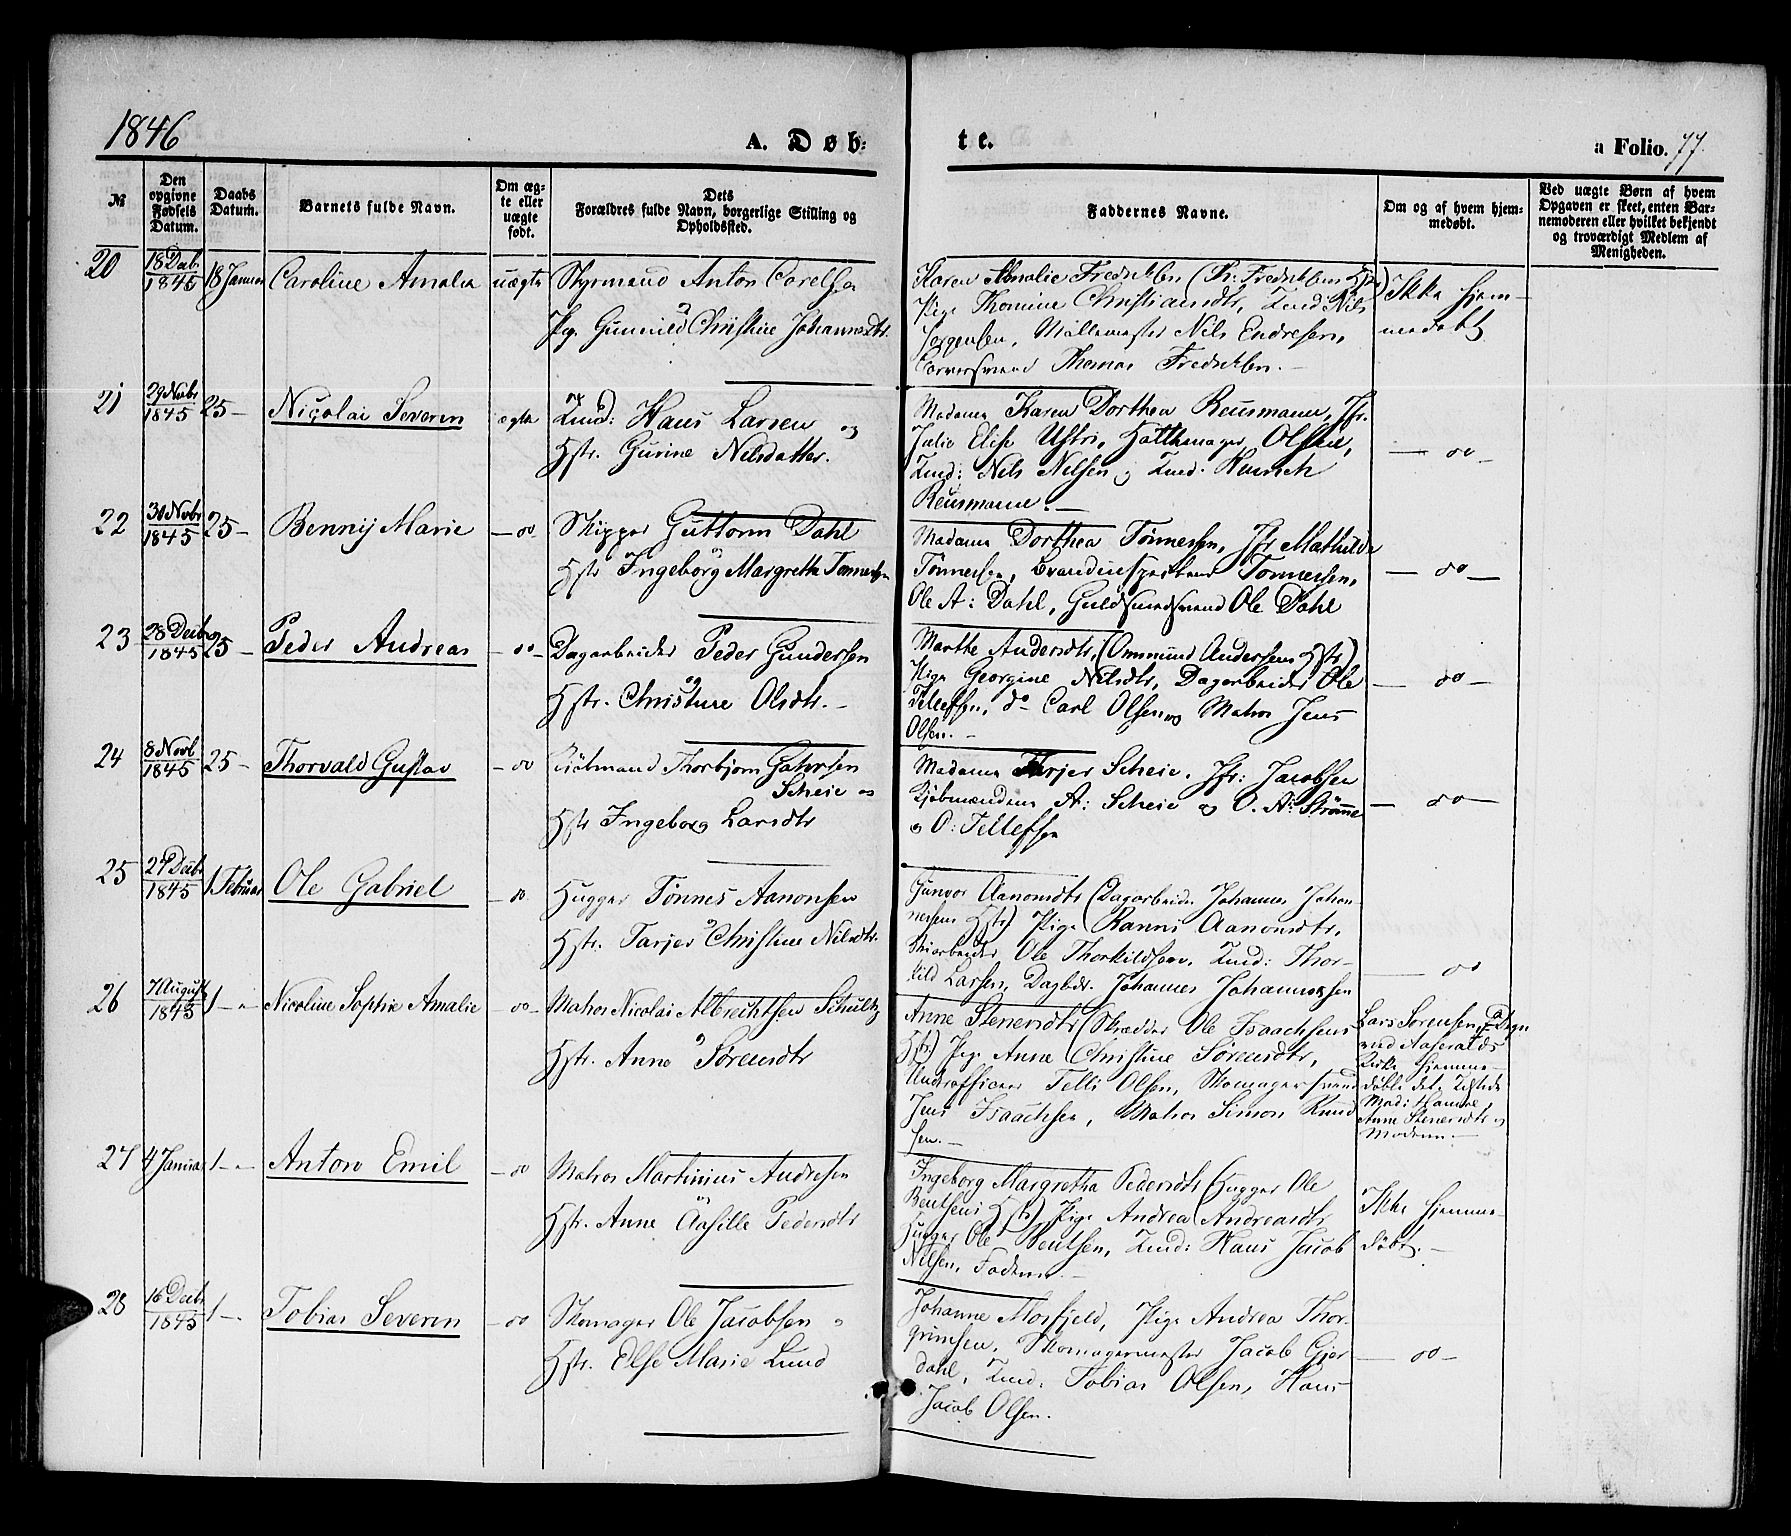 1846
A. Døb:
te.
a Folio. 77.
№
Den opgivne Fødsels Datum.
Daabs Datum.
Barnets fulde Navn.
Om ægte eller uægte født.
Dets Forældres fulde Navn, borgerlige Stilling og Opholdssted.
Faddernes Navne.
Om og af hvem hjemmedøbt.
Ved uægte Børn af hvem Opgaven er skeet, enten Barnemoderen eller hvilket bekjendt og troværdigt Medlem af Menigheden.
20
18 Decb.
1845
18 Januar
Caroline Amalia
uægte
Styrmand Anton Carelsen
og
Pig. Gunnild Christine Johannesdtr.
Karen Amalie Fredriksen (Th: Fredriksens Hstr)
Pige Thomine Christiansdtr, Tmd: Nils
Jørgensen, Møllemester Nils Endresen,
Farversvend Thomas Fredriksen.
Ikke hjem-
medøbt
21
29 Novbr
1845
25 -
Nicolai Severin
ægte
Tmd: Hans Larsen og
Hstr. Gurine Nilsdatter.
Madame Karen Dorthea Reusmann, Jfr.
Julie Elise Ustri, Hattemager Olsen,
Tmd: Nels Nelsen og Tmd. Henrich
Reusmann. -
- do -
22
30 Novbr
1845
25 -
Benny Marie
- do
Skipper Guttorm Dahl
og
Hstr Ingeborg Margrethe Tønnessen
Madame Dorthea Tønnessen, Jfr Mathilde
Tønnessen, Tønnessen,
Ole A: Dahl, Guldsmedsvend Ole Dahl
- do -
23
28 Decbr
1845
25 -
Peder Andreas
- do -
Dagarbeider Peder Gundersen
og
Hstr. Christine Olsdtr. -
Marthe Andersdtr, (Ommund Andersens Hstr)
Pige Georgine Nelsdtr, Dagarbeider Ole
Tellefsen, do Carl Olsen og Matros Jens
Olsen. -
- do -
24
8 Novb
1845
25 -
Thorvald Gustav
- do
Kjøbmand Thorbjørn
Scheie og
Hstr Ingeborg Larsdtr
Madame Tarjer Scheie, Jfr: Jacobsen
Kjøbmændene A: Scheie og O. A: Strømme
og O: Tellefsen
- do -
25
27 Decbr
1845
1 Februar
Ole Gabriel
- do.
Hugger Tønnes Aanonsen
og
Hstr. Tarjer Christine Nilsdtr.
Gunvor Aanonsdtr (Dagarbeider Johannes Johan-
nesens Hstr) Pige Ranni Aanonsdtr,
Ole Thorkildsen, Tmd: Thor-
kild Larsen, Dagbdr. Johannes Johannessen
- do
26
7 August
1845
1 - -
Nicoline Sophie Amalie
- do -
Matros Nicolai Albrechtsen Schultz
og
Hstr. Anne Sørensdtr
Anne Stenersdtr (Skrædder Ole Isaachsens
Hstr) Pige Anne Christine Sørensdtr,
Underofficer Telli Olsen, Skomagersvend
Jens Isaachsen, Matros Simon Knud
sen. -
Lars Sørensen, Degn
ved Aaseralds
Kirke hjemme-
døbte det.
Mad:
Anne Stenersdtr og
Moderen. -
27
4 Januar
1 - -
Anton Emil
- do
Matros Martinius Andresen
og
Hstr. Anne Aasille Pedersdtr
Ingeborg Margretha Pedersdtr (Hugger Ole
Bentsens Hstr) Pige Andrea Andreasdtr
Hugger Ole Bentsen, Tmd: Hans Jacob
Nilsen, Faderen. -
Ikke hjemme-
døbt. -
28
16 Decbr
1845
1 - -
Tobias Severin
- do
Skomager Ole Jacobsen og
Hstr. Else Marie Lund
Johanne Mosfjeld, Pige Andrea Thor-
grimsen, Skomagermester Jacob Gjer
dahl, Tmd: Tobias Olsen, Hans
Jacob Olsen.
- do -